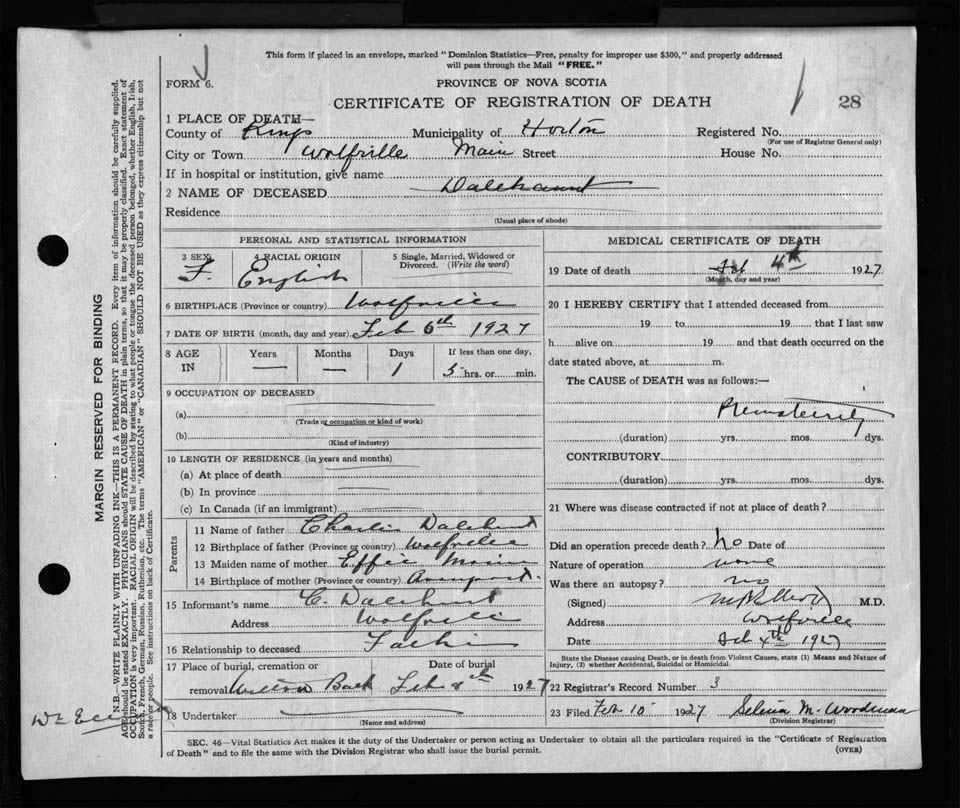 This form if placed in an envelope, marked "Dominion Statistics—Free, penalty for improper use $300," and properly addressed
will pass through the Mail "FREE."
FORM 6.
PROVINCE OF NOVA SCOTIA
CERTIFICATE OF REGISTRATION OF DEATH
28
1 PLACE OF DEATH—
County of Kings Municipality of Horton Registered No.
(For use of Registrar General only)
City or Town Wolfville Main Street House No.
If in hospital or institution, give name
2 NAME OF DECEASED
Residence
(Usual place of abode)
PERSONAL AND STATISTICAL INFORMATION
3 SEX 4 RACIAL ORIGIN 5 Single, Married, Widowed or Divorced. (Write the word)
F. English
6 BIRTHPLACE (Province or country) Wolfville
7 DATE OF BIRTH (month, day and year) Feb 6th 1927
8 AGE IN Years Months Days If less than one day,
— — 1 5 hrs. or min.
9 OCCUPATION OF DECEASED
(a)
(Trade or occupation or kind of work)
(b)
(Kind of industry)
10 LENGTH OF RESIDENCE (in years and months)
(a) At place of death
(b) In province
(c) In Canada (if an immigrant)
Parents
11 Name of father Charlie
12 Birthplace of father (Province or country) Wolfville
13 Maiden name of mother Effie
14 Birthplace of mother (Province or country)
15 Informant's name C.
Address Wolfville
16 Relationship to deceased Father
17 Place of burial, cremation or Date of burial
removal Feb 1927
18 Undertaker
(Name and address)
MEDICAL CERTIFICATE OF DEATH
19 Date of death Feb 4th 1927
(Month, day and year)
20 I HEREBY CERTIFY that I attended deceased from
19 to 19 that I last saw
h alive on 19 and that death occurred on the
date stated above, at m.
The CAUSE of DEATH was as follows:—
(duration) yrs. mos. dys.
CONTRIBUTORY
(duration) yrs. mos. dys.
21 Where was disease contracted if not at place of death?
Did an operation precede death? No Date of
Nature of operation none
Was there an autopsy? no
(Signed) M.D.
Address Wolfville
Date Feb 1927
State the Disease causing Death, or in death from Violent Causes, state (1) Means and Nature of
Injury, (2) whether Accidental, Suicidal or Homicidal.
22 Registrar's Record Number 3
23 Filed Feb 10 1927 Selina M. Woodman
(Division Registrar)
SEC. 46—Vital Statistics Act makes it the duty of the Undertaker or person acting as Undertaker to obtain all the particulars required in the "Certificate of Registration
of Death" and to file the same with the Division Registrar who shall issue the burial permit.
(OVER)
MARGIN RESERVED FOR BINDING
N.B.—WRITE PLAINLY WITH UNFADING INK—THIS IS A PERMANENT RECORD. Every item of information should be carefully supplied.
AGE should be stated EXACTLY. PHYSICIANS should STATE CAUSE OF DEATH in plain terms, so that it may be properly classified. Exact statement of
OCCUPATION is very important. RACIAL ORIGIN will be described by stating to what people or tongue the deceased person belonged, whether English, Irish,
Scotch, French, German, Russian, Ruthenian, etc. The terms "AMERICAN" or "CANADIAN" SHOULD NOT BE USED as they express citizenship but not
a race or people. See instructions on back of Certificate.